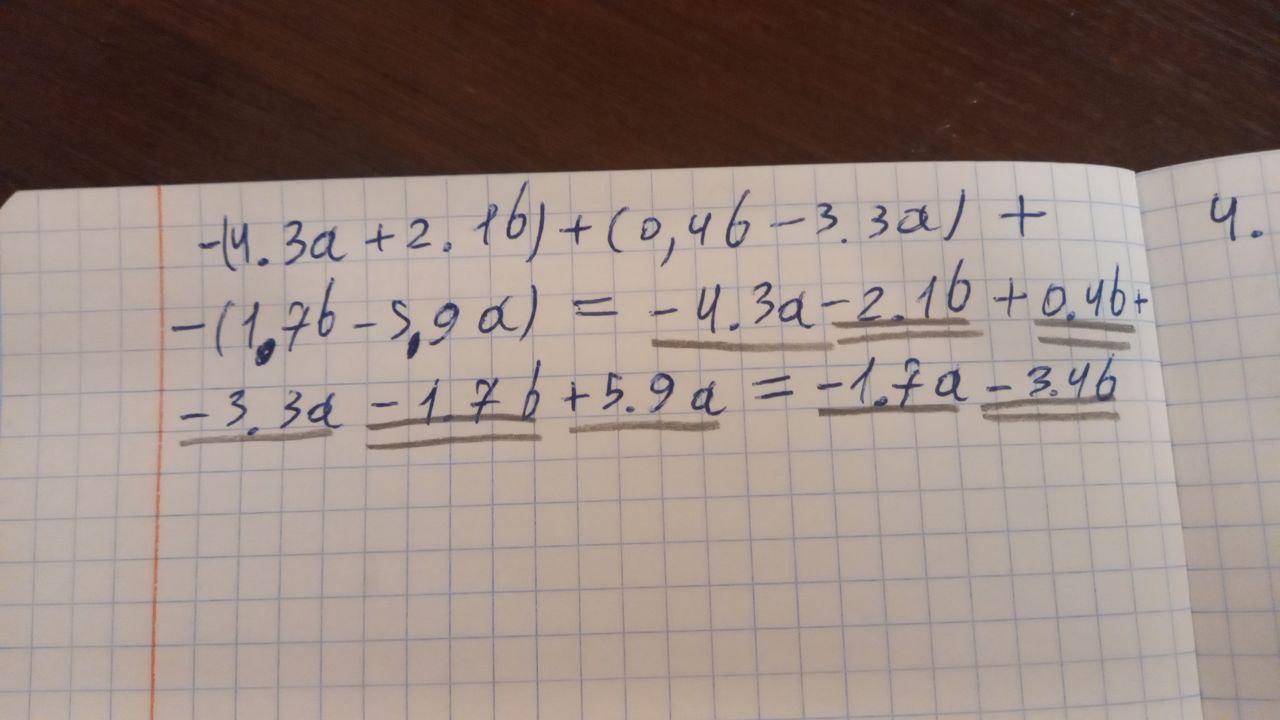 -(4.3a + 2.1b) + (0,4b - 3.3a) +
-(1,7b - 5,9a) = -4.3a - 2.1b + 0.4b +
-3.3a - 1.7b + 5.9a = -1.7a - 3.4b
4.